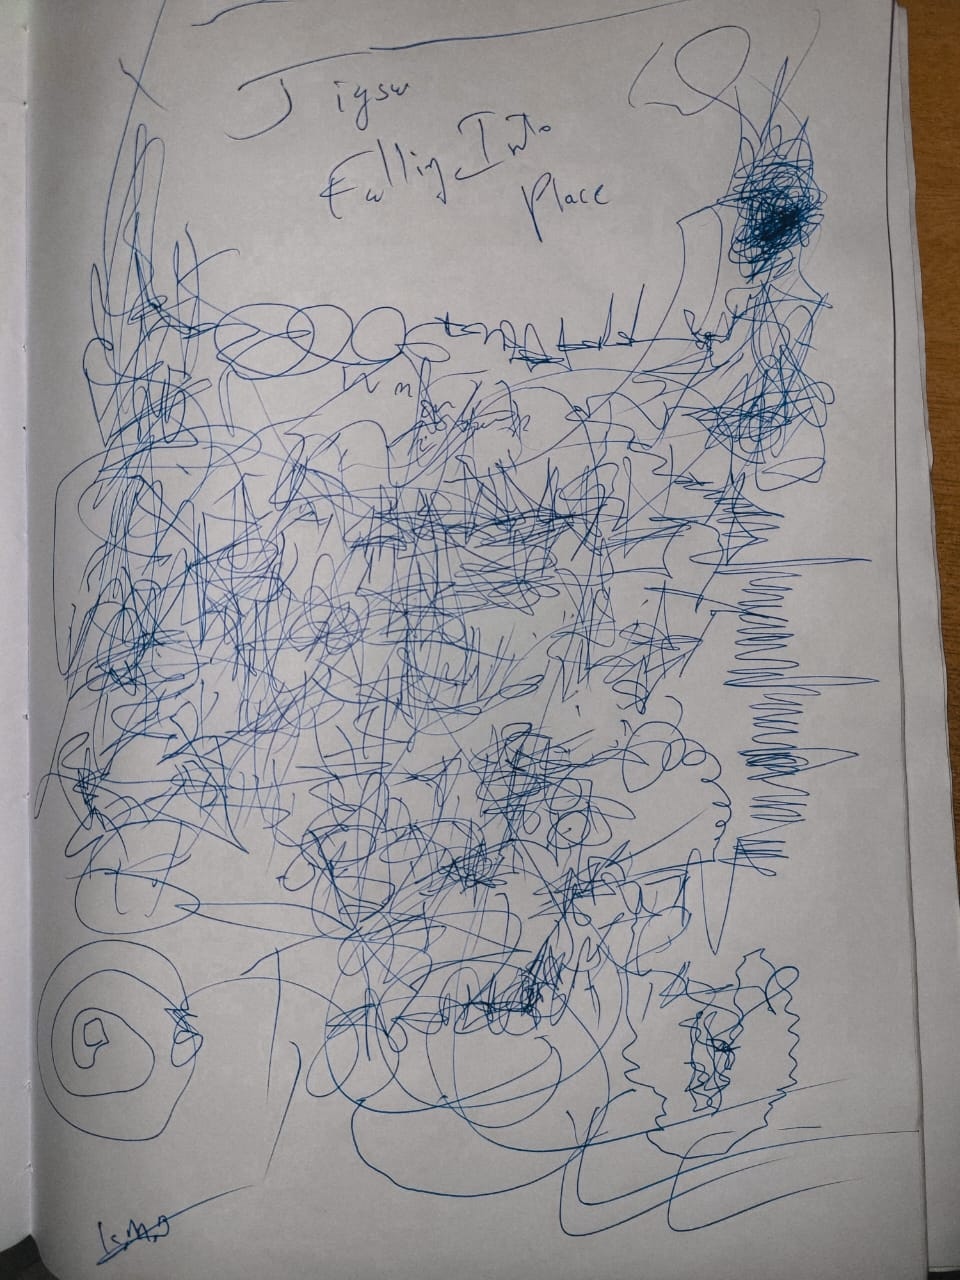 Jigsw
Falling Into
Place